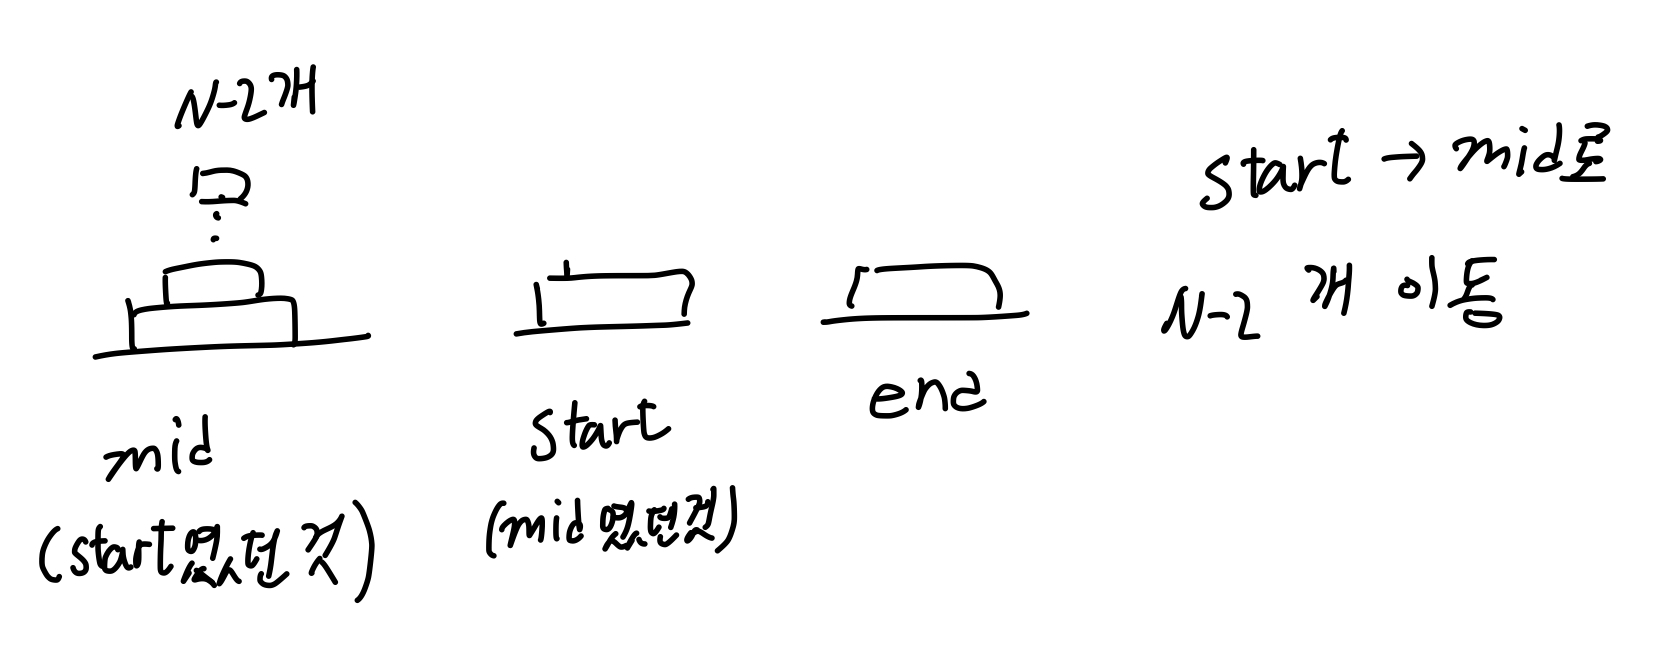 N-2개
mid
(start였던 것)
start
(mid였던것)
end
start → mid로
N-2 개 이동